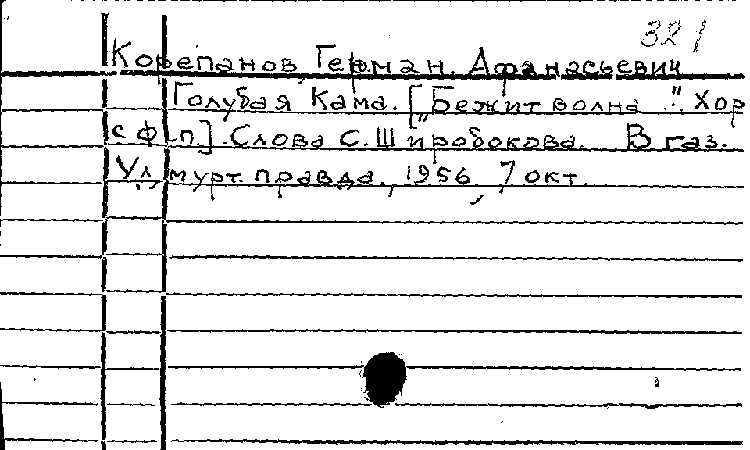 321
Корепанов, Герман Афанасьевич
Голубая Кама. [„Бежит волна...". Хор
с ф-п]. Слова С. Широбокова. В газ.
Удмурт. правда, 1956, 7 окт.